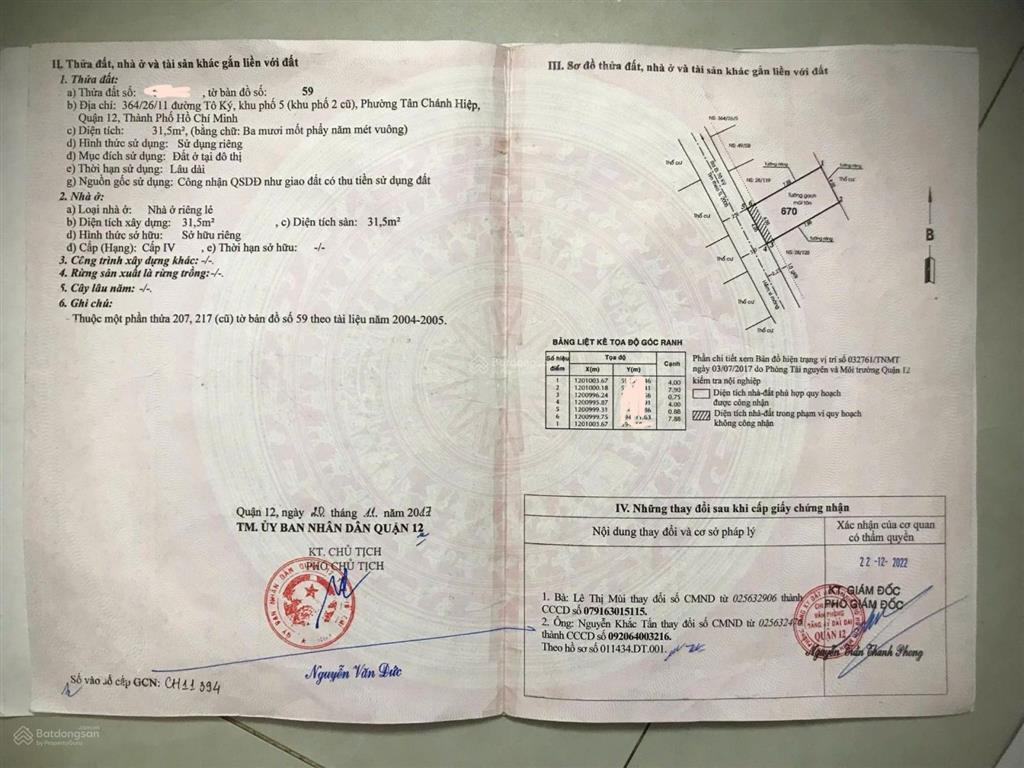 II. Thửa đất, nhà ở và tài sản khác gắn liền với đất
1. Thửa đất:
a) Thửa đất số: , tờ bản đồ số: 59
b) Địa chỉ: 364/26/11 đường Tô Ký, khu phố 5 (khu phố 2 cũ), Phường Tân Chánh Hiệp,
Quận 12, Thành Phố Hồ Chí Minh
c) Diện tích: 31,5m², (bằng chữ: Ba mươi mốt phẩy năm mét vuông)
d) Hình thức sử dụng: Sử dụng riêng
đ) Mục đích sử dụng: Đất ở tại đô thị
e) Thời hạn sử dụng: Lâu dài
g) Nguồn gốc sử dụng: Công nhận QSDĐ như giao đất có thu tiền sử dụng đất
2. Nhà ở:
a) Loại nhà ở: Nhà ở riêng lẻ
b) Diện tích xây dựng: 31,5m² , c) Diện tích sàn: 31,5m²
d) Hình thức sở hữu: Sở hữu riêng
đ) Cấp (Hạng): Cấp IV , e) Thời hạn sở hữu: -/-
3. Công trình xây dựng khác: -/-.
4. Rừng sản xuất là rừng trồng:-/-.
5. Cây lâu năm: -/-.
6. Ghi chú:
Thuộc một phần thửa 207, 217 (cũ) tờ bản đồ số 59 theo tài liệu năm 2004-2005.
Quận 12, ngày 20 tháng 11 năm 2017
TM. ỦY BAN NHÂN DÂN QUẬN 12
KT. CHỦ TỊCH
PHÓ CHỦ TỊCH
Nguyễn Văn Đức
Số vào sổ cấp GCN: CH11394
III. Sơ đồ thửa đất, nhà ở và tài sản khác gắn liền với đất
NS: 364/26/5
NS: 49/5B
Thổ cư
NS: 28/119
Tường riêng
Tường riêng
Thổ cư
Tường gạch
mái tôn
670
Thổ cư
Tường riêng
NS: 28/12B
Thổ cư
Thổ cư
Thổ cư
B
BẢNG LIỆT KÊ TỌA ĐỘ GÓC RANH
Số hiệu điểm Tọa độ Cạnh
X(m) Y(m)
1 1201003.67 4.00
2 1201000.18 7.90
3 1200996.24 0.75
4 1200995.87 4.00
5 1200999.31 0.88
6 1200999.75 7.88
1 1201003.67
Phần chi tiết xem Bản đồ hiện trạng vị trí số 032761/TNMT
ngày 03/07/2017 do Phòng Tài nguyên và Môi trường Quận 12
kiểm tra nội nghiệp
Diện tích nhà-đất phù hợp quy hoạch
được công nhận
Diện tích nhà-đất trong phạm vi quy hoạch
không công nhận
IV. Những thay đổi sau khi cấp giấy chứng nhận
Nội dung thay đổi và cơ sở pháp lý
Xác nhận của cơ quan
có thẩm quyền
22-12-2022
1. Bà: Lê Thị Mùi thay đổi số CMND từ 025632906 thành
CCCD số 079163015115.
2. Ông: Nguyễn Khắc Tấn thay đổi số CMND từ
thành CCCD số 092064003216.
Theo hồ sơ số 011434.DT.001.
KT. GIÁM ĐỐC
PHÓ GIÁM ĐỐC
VĂN PHÒNG
ĐĂNG KÝ ĐẤT ĐAI
QUẬN 12
Nguyễn Trần Thanh Phong
Batdongsan
by PropertyGuru